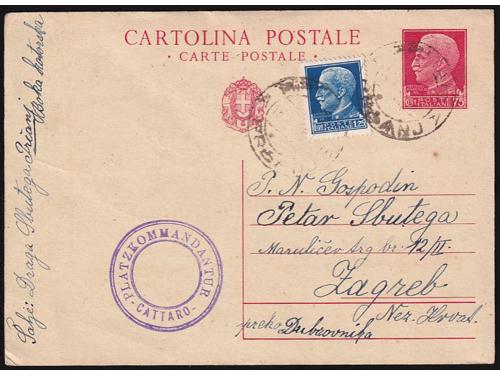 CARTOLINA POSTALE
CARTE POSTALE
75
POSTE ITALIANE
1,25
P. N. Gospodin
Petar Sbutega
Marulićev trg br. 12/II
Zagreb
Nez. Hrvat.
preko Dubrovnika
PLATZKOMMANDANTUR
-CATTARO-
Šalje: Draga Sbutega Prčanj
Boka kotorska